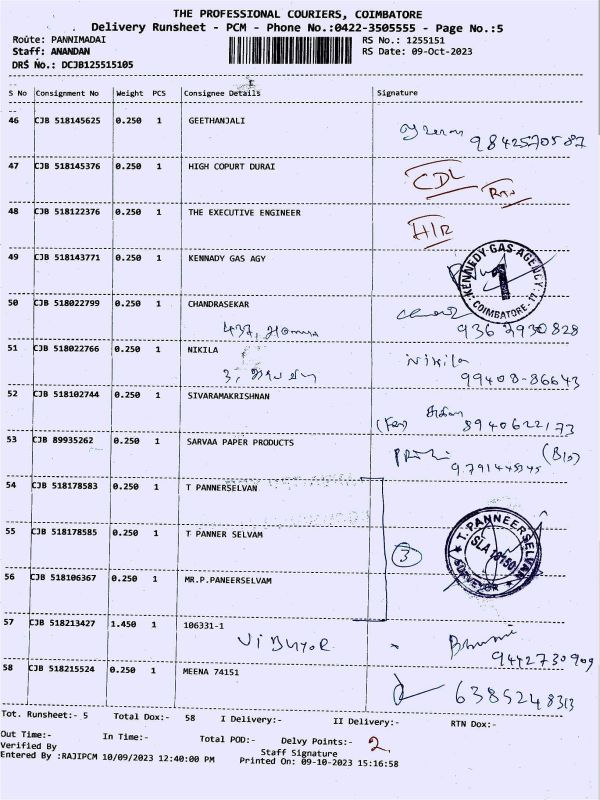 THE PROFESSIONAL COURIERS, COIMBATORE
Delivery Runsheet - PCM - Phone No.:0422-3505555 - Page No.:5
Route: PANNIMADAI RS No.: 1255151
Staff: ANANDAN RS Date: 09-Oct-2023
DRS No.: DCJB125515105
S No Consignment No Weight PCS Consignee Details Signature
46 CJB 518145625 0.250 1 GEETHANJALI
9842570587
47 CJB 518145376 0.250 1 HIGH COPURT DURAI CDL RTN
48 CJB 518122376 0.250 1 THE EXECUTIVE ENGINEER H/R
49 CJB 518143771 0.250 1 KENNADY GAS AGY KENNEDY GAS AGENCY 1 COIMBATORE-17
50 CJB 518022799 0.250 1 CHANDRASEKAR
437, 9362930828
51 CJB 518022766 0.250 1 NIKILA Nikila
3, 99408-86643
52 CJB 518102744 0.250 1 SIVARAMAKRISHNAN
8940622173
53 CJB 89935262 0.250 1 SARVAA PAPER PRODUCTS
9791445345
54 CJB 518178583 0.250 1 T PANNERSELVAN
55 CJB 518178585 0.250 1 T PANNER SELVAM 3 T. PANNEERSELVAN SURVEYOR
56 CJB 518106367 0.250 1 MR.P.PANEERSELVAM
57 CJB 518213427 1.450 1 106331-1
9442730909
58 CJB 518215524 0.250 1 MEENA 74151 6385248313
Tot. Runsheet:- 5 Total Dox:- 58 I Delivery:- II Delivery:- RTN Dox:-
Out Time:- In Time:- Total POD:- Delvy Points:- 2
Verified By Staff Signature
Entered By :RAJIPCM 10/09/2023 12:40:00 PM Printed On: 09-10-2023 15:16:58